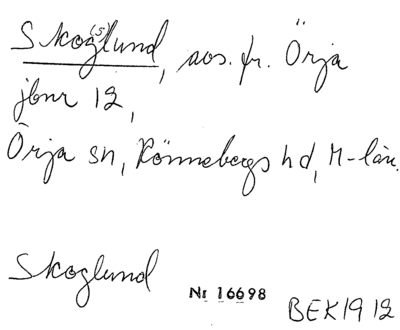 Skog(s)lund, aos. fr. Örja
jbnr 12,
Örja sn, Rönnebergs hd, M-län.
Skoglund
Nr 16698
BEK 19 12